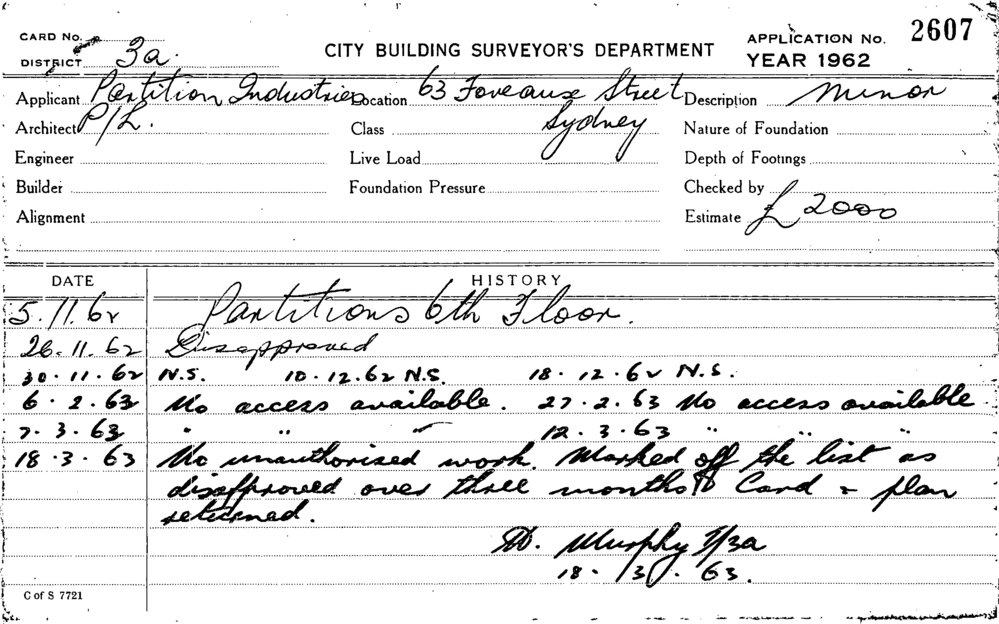 CARD No.
DISTRICT 3a.
CITY BUILDING SURVEYOR'S DEPARTMENT
APPLICATION No. 2607
YEAR 1962
Applicant Partition Industries Location 63 Foveaux Street Description Minor
Architect P/L. Class Sydney Nature of Foundation
Engineer Live Load Depth of Footings
Builder Foundation Pressure Checked by
Alignment Estimate £2000
DATE HISTORY
5.11.62 Partitions 6th Floor.
26.11.62 Disapproved
30.11.62 N.S. 10.12.62 N.S. 18.12.62 N.S.
6.2.63 No access available. 27.2.63 No access available
7.3.63 " " " 12.3.63 " " "
18.3.63 No unauthorised work. Marked off the list as
disapproved over three months Card & plan
returned.
Murphy 7/3a
18.3.63.
C of S 7721